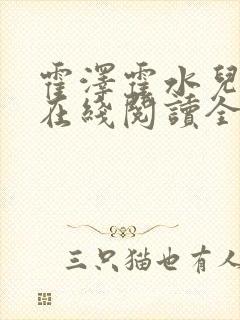 霍澤霍水兒
在綫閱讀全
三只猫也有人